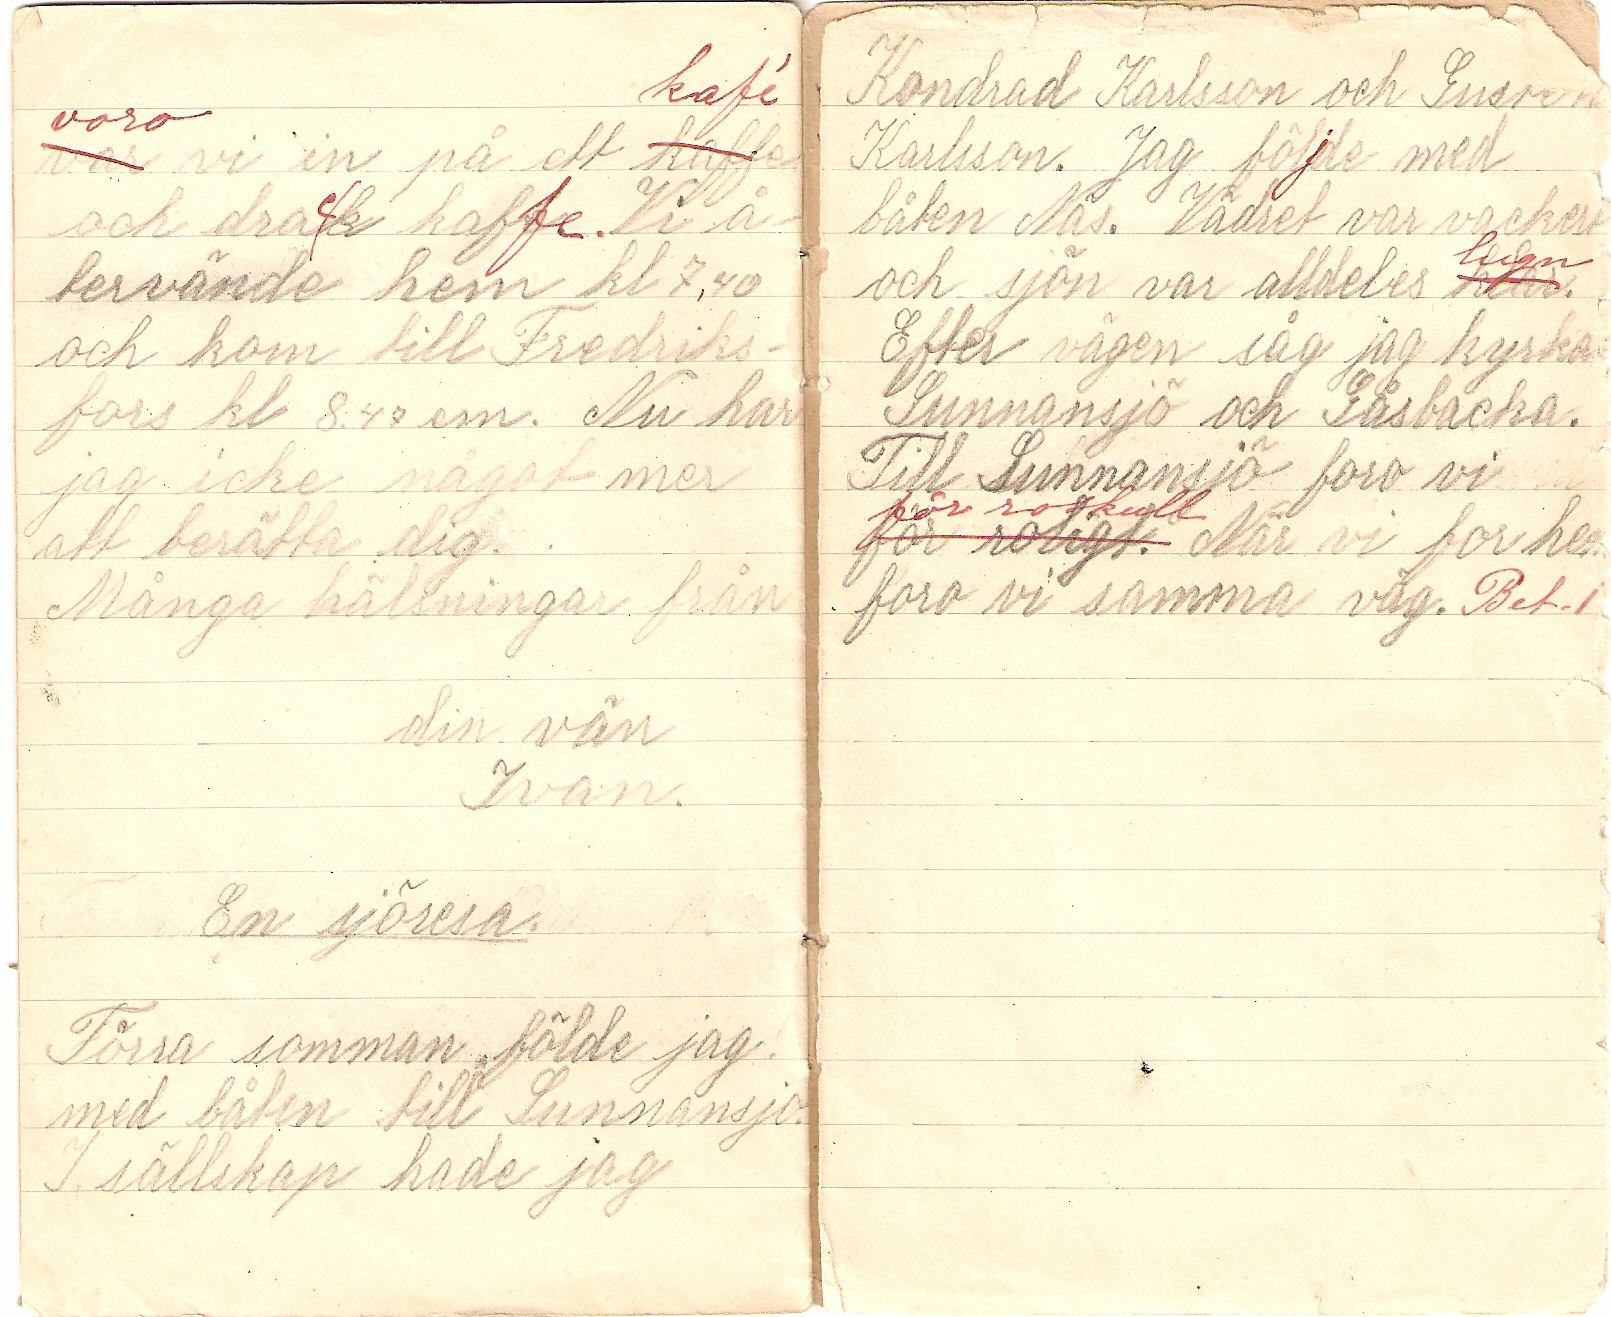 kafé
voro
var vi in på ett kaffe
och drack kaffe. Vi å-
tervände hem kl 7,40
och kom till Fredriks-
fors kl 8.40 em. Nu har
jag icke något mer
att berätta dig.
Många hälsningar från
din vän
Ivan.
En sjöresa.
Förra somman földe jag
med båten till Sunnansjö.
I sällskap hade jag
Kondrad Karlsson och
Karlsson. Jag följde med
båten Näs. Vädret var vackert
lugn
och sjön var alldeles klar.
Efter vägen såg jag kyrka
Sunnansjö och Gåsbacka.
Till Sunnansjö foro vi
för ro skull
för roligt. När vi for hem
foro vi samma väg. Bet. 1